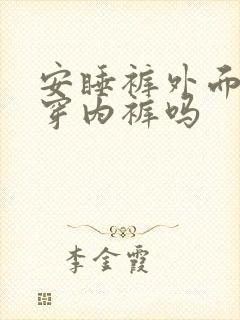 安睡裤外而
穿内裤吗
李金霞